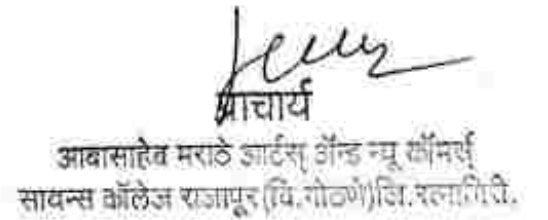 प्राचार्य
आबासाहेब मराठे आर्टस् ॲन्ड न्यू कॉमर्स
सायन्स कॉलेज राजापूर (वि.गोठणे) जि. रत्नागिरी.